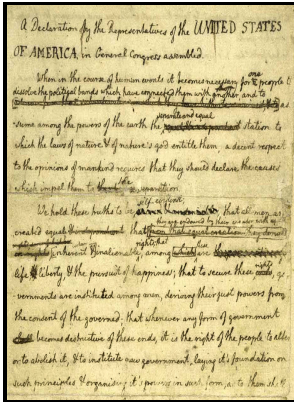 A Declaration by the Representatives of the UNITED STATES
OF AMERICA, in General Congress assembled.
When in the course of human events it becomes necessary for one people to
dissolve the political bands which have connected them with another, and to
as
separate and equal
sume among the powers of the earth the station to
which the laws of nature & of nature's god entitle them, a decent respect
to the opinions of mankind requires that they should declare the causes
which impel them to the separation.
self-evident
We hold these truths to be that all men are
created equal that
rights; that
inherent & inalienable, among which are
life & liberty, & the pursuit of happiness; that to secure these rights, go
vernments are instituted among men, deriving their just powers from
the consent of the governed; that whenever any form of government
becomes destructive of these ends, it is the right of the people to alter
or to abolish it, & to institute new government, laying it's foundation on
such principles & organising it's powers in such form, as to them shall